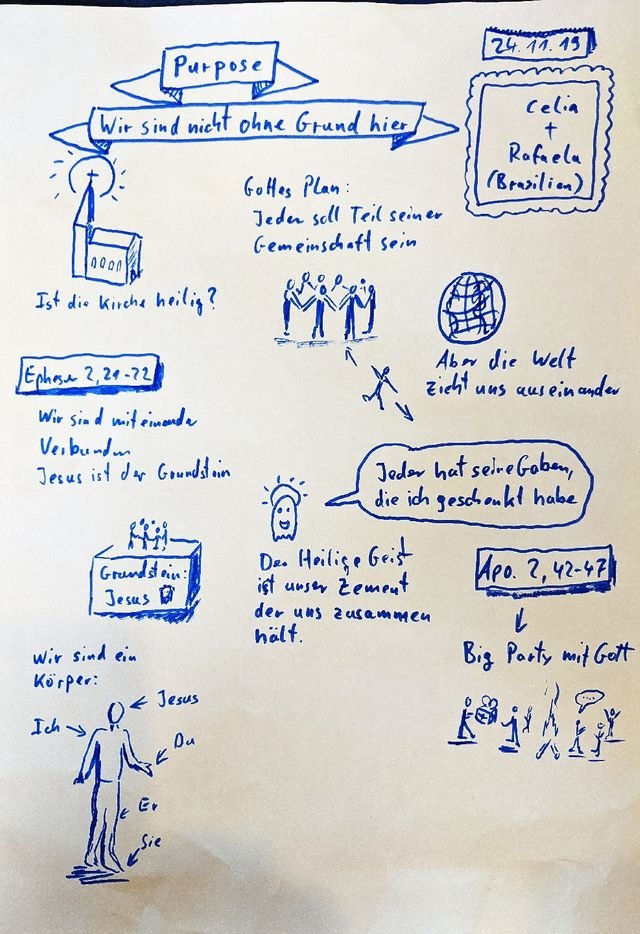 Purpose
24.11.19
Wir sind nicht ohne Grund hier
Celia
+
Rafaela
(Brasilien)
Gottes Plan:
Jeder soll Teil seiner
Gemeinschaft sein
Ist die Kirche heilig?
Aber die Welt
zieht uns auseinander
Epheser 2,21-22
Wir sind miteinander
Verbunden
Jesus ist der Grundstein
Jeder hat seine Gaben,
die ich geschenkt habe
Grundstein:
Jesus
Der Heilige Geist
ist unser Zement
der uns zusammen
hält.
Apo. 2, 42-47
Big Party mit Gott
Wir sind ein
Körper:
Jesus
Ich
Du
Er
Sie